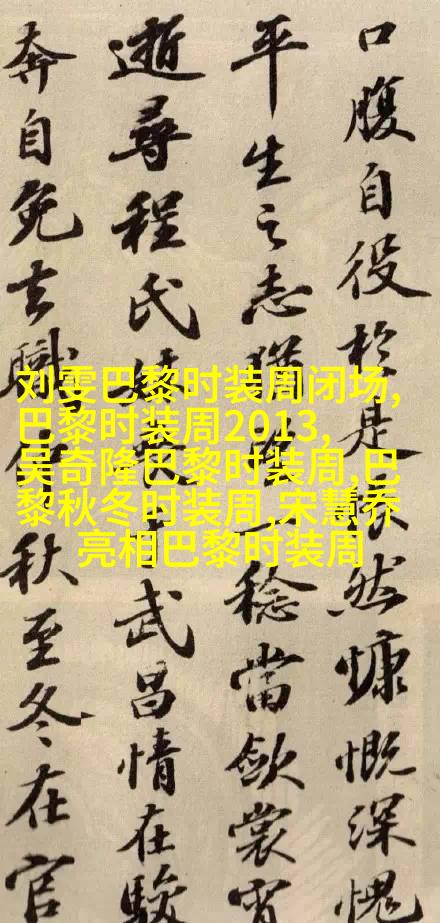 口腹自役於是然慷慨深愧
平生之志猶一稔當斂裳宵
逝尋程氏武昌情在駿
奔自免去職秋至冬在官
刘雯巴黎时装周闭场,
巴黎时装周2013,
吴奇隆巴黎时装周,巴
黎秋冬时装周,宋慧乔
亮相巴黎时装周